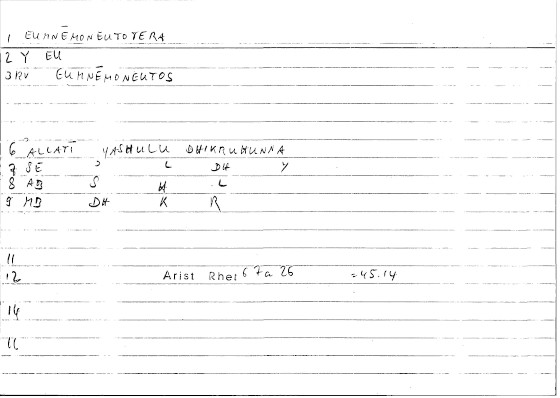 1 EUMNĒMONEUTOTERA
2 Y EU
3 RV EUMNĒMONEUTOS
6 ʾALLATĪ YASHULU DHIKRUHUNNA
7 SE ʾ L DH Y
8 AB S H L
9 MD DH K R
11
12 Arist Rhet 67a 26 =45.14
14